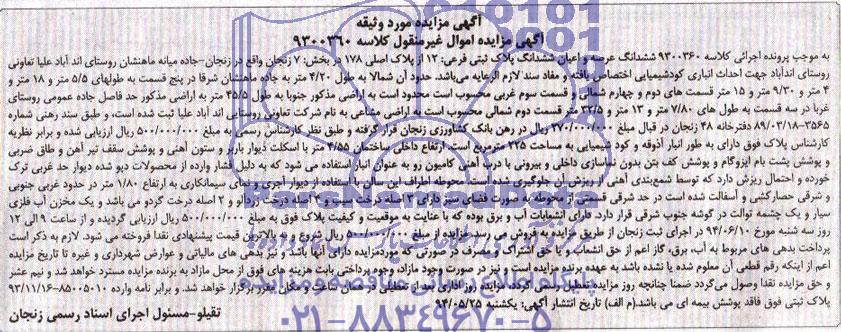 آگهی مزایده مورد وثیقه
آگهی مزایده اموال غیرمنقول کلاسه ۹۳۰۰۳۶۰
به موجب پرونده اجرائی کلاسه ۹۳۰۰۳۶۰ ششدانگ عرصه و اعیان ششدانگ پلاک ثبتی فرعی: ۱۲ از پلاک اصلی ۱۷۸ در بخش: ۷ زنجان واقع در زنجان-جاده میانه ماهنشان روستای اند آباد علیا تعاونی
روستای اندآباد جهت احداث انباری کودشیمیایی اختصاص یافته و مفاد سند لازم الرعایه می‌باشد. حدود آن شمالا به طول ۴/۲۰ متر به جاده ماهنشان شرقا در پنج قسمت به طولهای ۵/۵ متر و ۱۸ متر و
۴ متر و ۹/۳۰ متر و ۱۵ متر قسمت های دوم و چهارم شمالی و قسمت سوم غربی محسوب است محدود است به اراضی مذکور جنوبا به طول ۴۵/۵ متر به اراضی مذکور حد فاصل جاده عمومی روستای
غربا در سه قسمت به طول های ۷/۸۰ متر و ۱۳ متر و ۳۲/۵ متر قسمت دوم شمالی محسوب است به اراضی مشاعی به نام شرکت تعاونی روستایی اند آباد علیا ثبت شده است، و طبق سند رهنی شماره
۳۵۶۵-۸۹/۰۳/۱۸ دفترخانه ۴۸ زنجان در قبال مبلغ ۲۷۰/۰۰۰/۰۰۰ ریال در رهن بانک کشاورزی زنجان قرار گرفته و طبق نظر کارشناس رسمی به مبلغ ۵۰۰/۰۰۰/۰۰۰ ریال ارزیابی شده و برابر نظریه
کارشناس پلاک فوق دارای به طور انبار آذوقه و کود شیمیایی به مساحت ۲۲۵ مترمربع است. ارتفاع داخلی ساختمان ۴/۵۵ متر با اسکلت دیوار باربر و ستون آهنی و پوشش سقف تیر آهن و طاق ضربی
و پوشش پشت بام ایزوگام و پوشش کف بتن بدون نماسازی داخلی و بیرونی با درب آهنی کامیون رو به عنوان انبار استفاده می شود که به دلیل فشار وارده از محصولات دپو شده دیوار حد غربی ترک
خورده و احتمال ریزش دارد که توسط شمع‌بندی آهنی از ریزش آن جلوگیری شده است. محوطه اطراف این سالن با استفاده از دیوار آجری و نمای سیمانکاری به ارتفاع ۱/۸۰ متر در حدود غربی جنوبی
و شرقی حصارکشی و آسفالت شده است در حد شرقی قسمتی از محوطه به صورت فضای سبز دارای ۳ اصله درخت سیب و ۴ اصله درخت زردآلو و ۲ اصله درخت گردو می باشد و یک مخزن آب فلزی
سیار و یک چشمه توالت در گوشه جنوب شرقی قرار دارد. دارای انشعابات آب و برق بوده که با عنایت به موقعیت و کیفیت پلاک فوق به مبلغ ۵۰۰/۰۰۰/۰۰۰ ریال ارزیابی گردیده و از ساعت ۹ الی ۱۲
روز سه شنبه مورخ ۹۴/۰۶/۱۰ در اجرای ثبت زنجان از طریق مزایده به فروش می رسد. مزایده از مبلغ ۵۰۰/۰۰۰/۰۰۰ ریال شروع و به بالاترین قیمت پیشنهادی نقدا فروخته می شود. لازم به ذکر است
پرداخت بدهی های مربوط به آب، برق، گاز اعم از حق انشعاب و یا حق اشتراک و مصرف در صورتی که موردمزایده دارای آنها باشد و نیز بدهی های مالیاتی و عوارض شهرداری و غیره تا تاریخ مزایده
اعم از اینکه رقم قطعی آن معلوم شده یا نشده باشد به عهده برنده مزایده است و نیز در صورت وجود مازاد، وجوه پرداختی بابت هزینه های فوق از محل مازاد به برنده مزایده مسترد خواهد شد و نیم عشر
و حق مزایده نقدا وصول می‌گردد ضمنا چنانچه روز مزایده تعطیل رسمی گردد، مزایده روز اداری بعد از تعطیلی در همان ساعت و مکان مقرر برگزار خواهد شد. و برابر نامه وارده ۸۵۰۰۵۰۱۰-۹۳/۱۱/۱۶
پلاک ثبتی فوق فاقد پوشش بیمه ای می باشد.(م الف) تاریخ انتشار آگهی: یکشنبه ۹۴/۰۵/۲۵
تقیلو-مسئول اجرای اسناد رسمی زنجان
۰۲۱-۸۸۳۴۹۶۷۰-۵